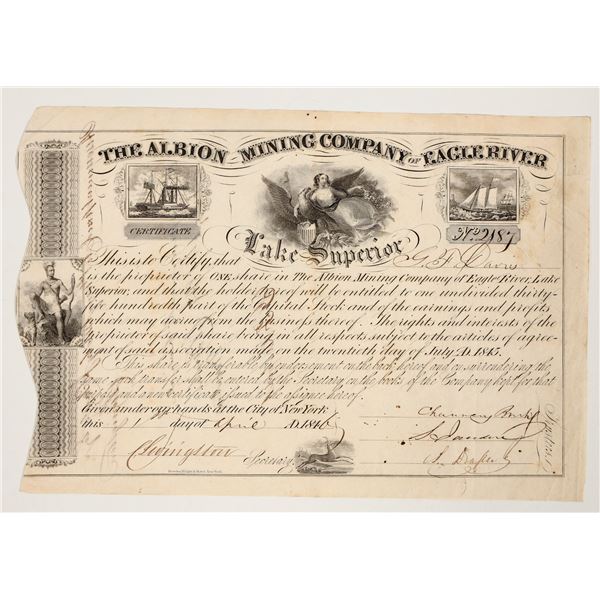 THE ALBION MINING COMPANY OF EAGLE RIVER
Lake Superior
CERTIFICATE
No 2187
This is to Certify, that G. T. Davis
is the proprietor of ONE share in The Albion Mining Company of Eagle River, Lake
Superior, and that the holder hereof will be entitled to one undivided thirty-
five hundredth part of the Capital Stock and of the earnings and profits
which may accrue from the business thereof. The rights and interests of the
proprietor of said share being in all respects subject to the articles of agree-
ment of said association made on the twentieth day of July A.D. 1845.
This share is transferable by endorsement on the back hereof, and on surrendering the
same such transfer shall be entered by the Secretary on the books of the Company kept for that
purpose and a new certificate issued to the assignee hereof.
Given under our hands at the City of New York
this 1 day of April A.D. 1846
Secretary.
Trustees.